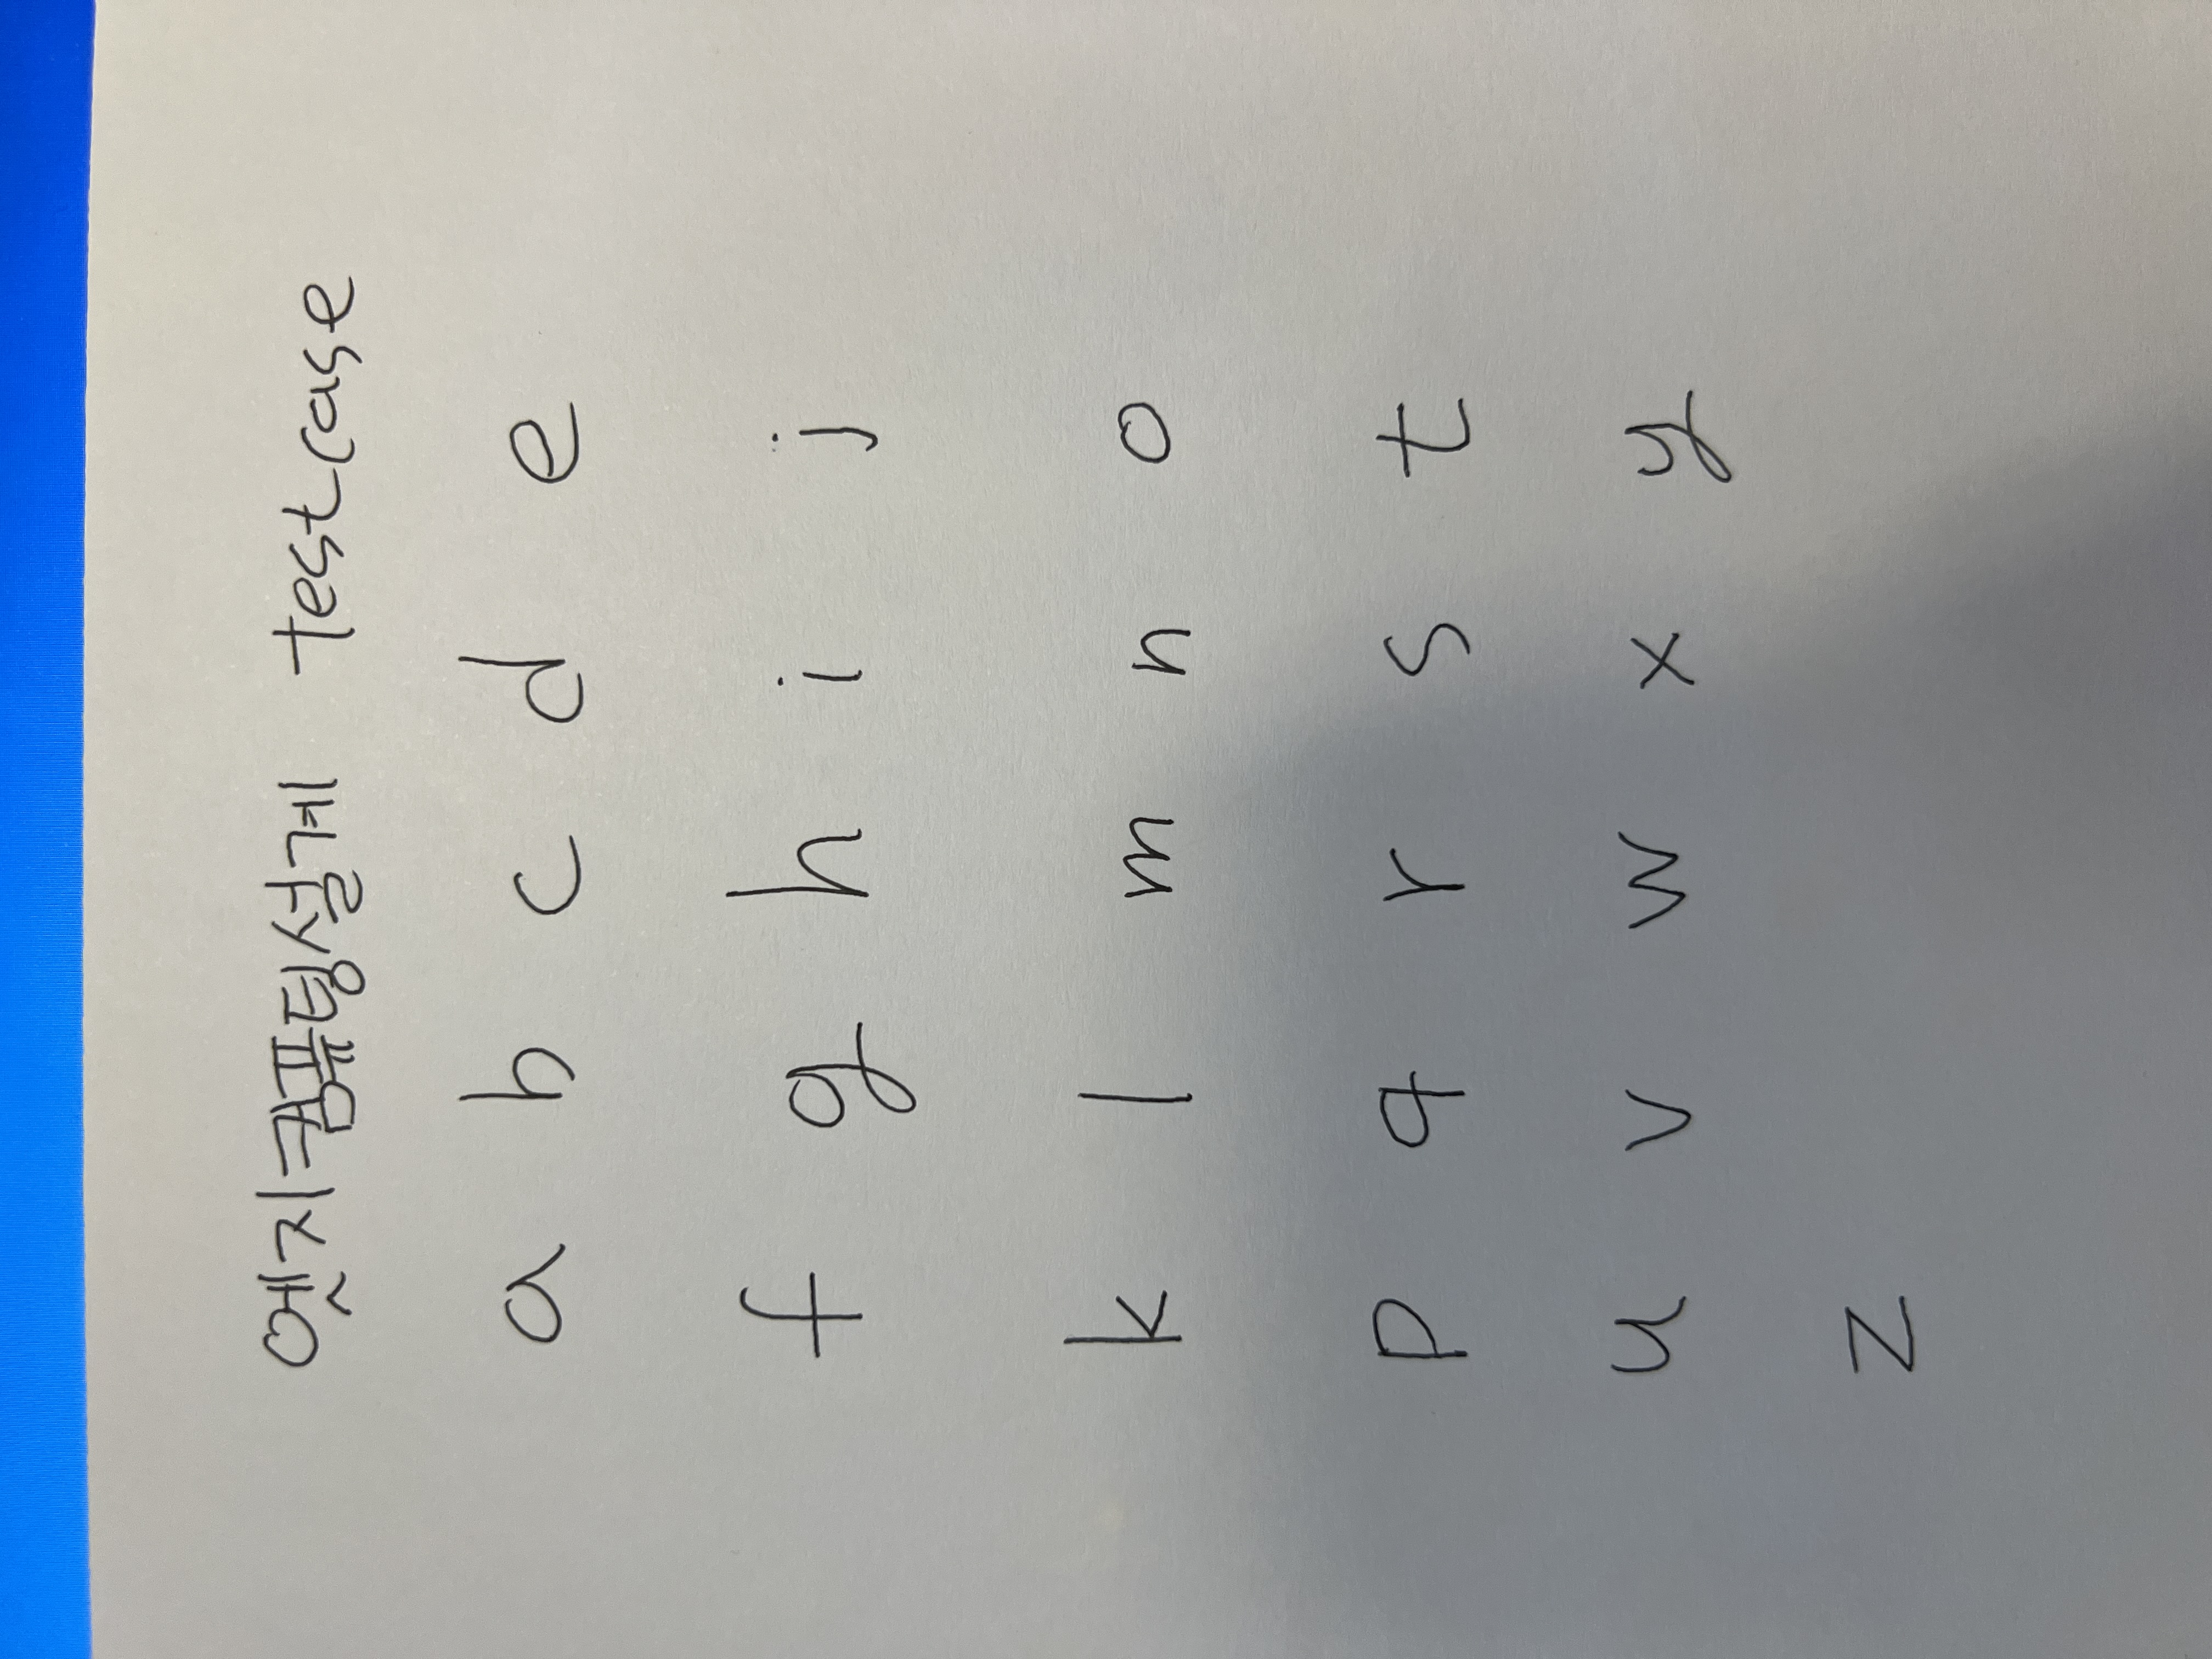 엣지컴퓨팅설계 testcase
a b c d e
f g h i j
k l m n o
p q r s t
u v w x y
z